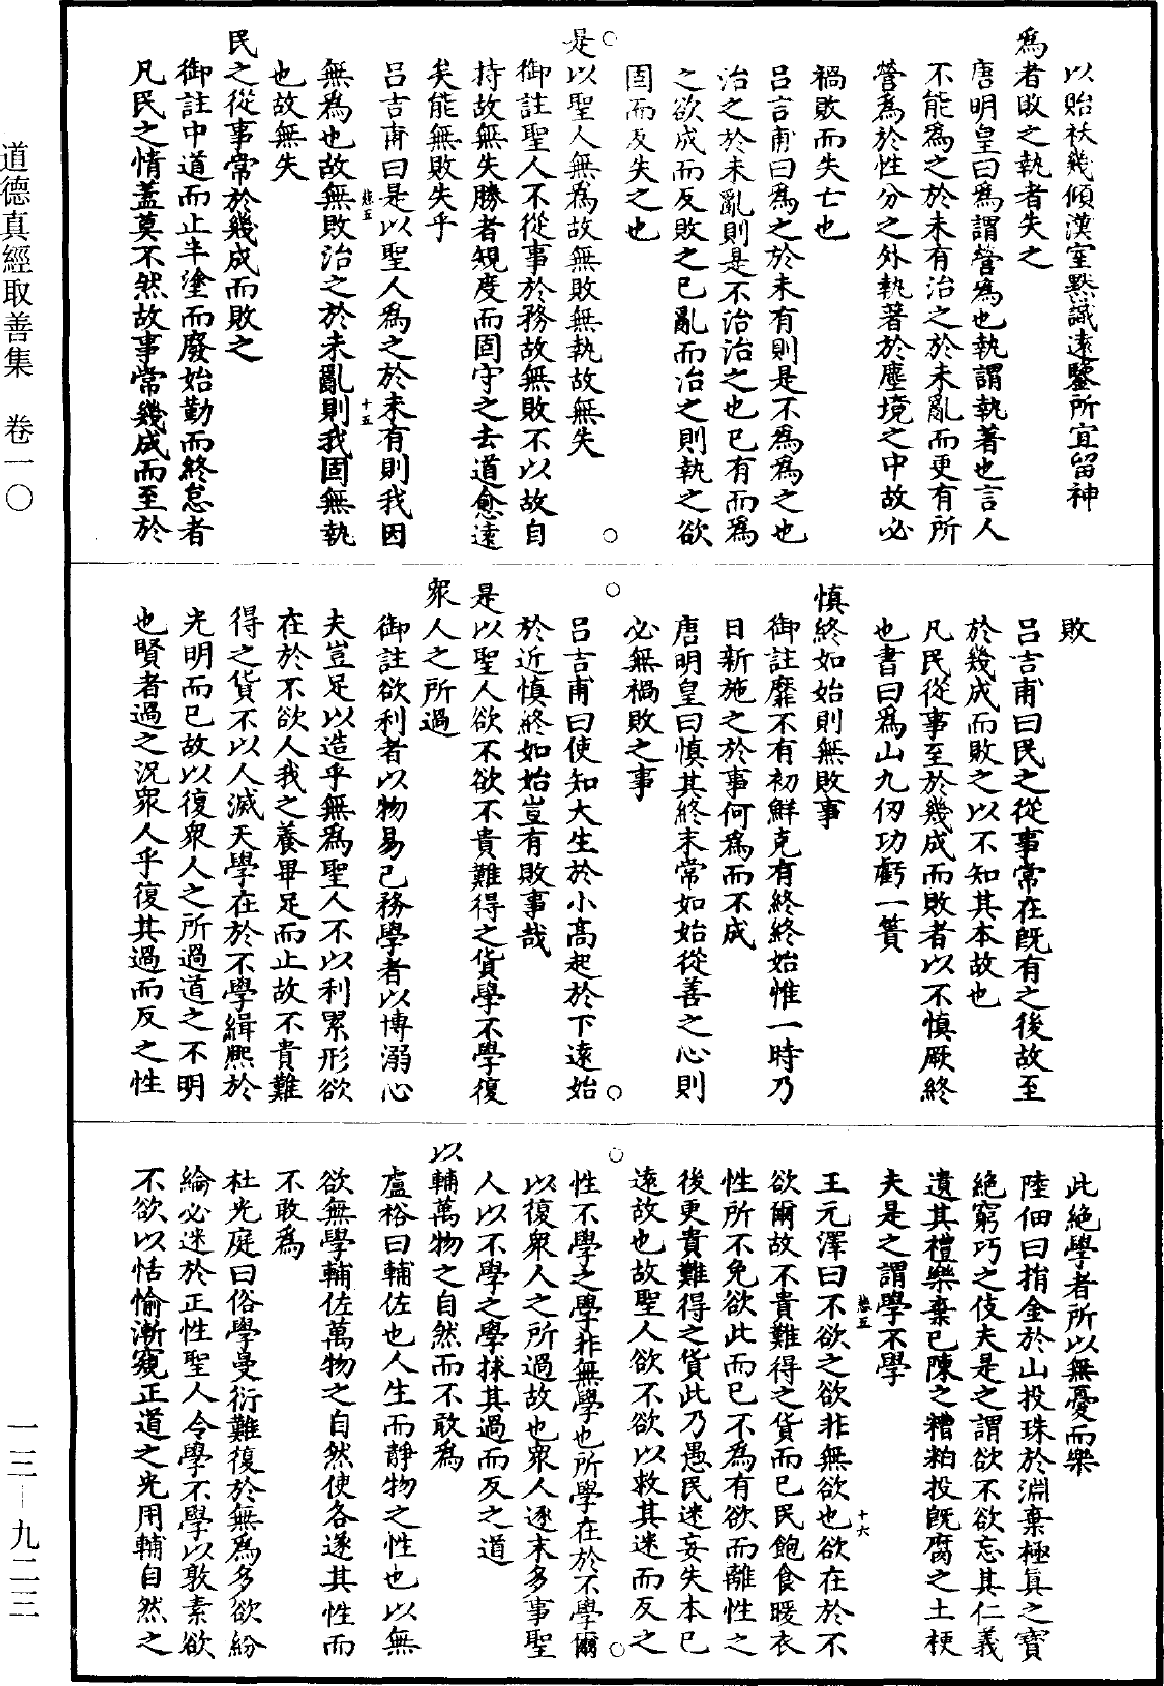 以貽袄幾傾漢室黙識遠鑒所宜留神
爲者敗之執者失之
唐明皇曰爲謂營爲也執謂執著也言人
不能爲之於未有治之於未亂而更有所
營爲於性分之外執著於塵境之中故必
禍敗而失亡也
呂吉甫曰爲之於未有則是不爲爲之也
治之於未亂則是不治治之也已有而爲
之欲成而反敗之已亂而治之則執之欲
固而反失之也
是以聖人無爲故無敗無執故無失
御註聖人不從事於務故無敗不以故自
持故無失勝者規度而固守之去道愈遠
矣能無敗失乎
呂吉甫曰是以聖人爲之於未有則我因
無爲也故無敗治之於未亂則我固無執
也故無失
民之從事常於幾成而敗之
御註中道而止半塗而廢始勤而終怠者
凡民之情蓋莫不然故事常幾成而至於
敗
呂吉甫曰民之從事常在旣有之後故至
於幾成而敗之以不知其本故也
凡民從事至於幾成而敗者以不慎厥終
也書曰爲山九仞功虧一簣
慎終如始則無敗事
御註靡不有初鮮克有終終始惟一時乃
日新施之於事何爲而不成
唐明皇曰慎其終末常如始從善之心則
必無禍敗之事
呂吉甫曰使知大生於小高起於下遠始
於近慎終如始豈有敗事哉
是以聖人欲不欲不貴難得之貨學不學復
衆人之所過
御註欲利者以物易己務學者以博溺心
夫豈足以造乎無爲聖人不以利累形欲
在於不欲人我之養畢足而止故不貴難
得之貨不以人滅天學在於不學緝熙於
光明而已故以復衆人之所過道之不明
也賢者過之況衆人乎復其過而反之性
此絶學者所以無憂而樂
陸佃曰捐金於山投珠於淵棄極眞之寶
絶窮巧之伎夫是之謂欲不欲忘其仁義
遺其禮樂棄已陳之糟粕投旣腐之土梗
夫是之謂學不學
王元澤曰不欲之欲非無欲也欲在於不
欲爾故不貴難得之貨而已民飽食暖衣
性所不免欲此而已不為有欲而離性之
後更貴難得之貨此乃愚民迷妄失本已
遠故也故聖人欲不欲以救其迷而反之
性不學之學非無學也所學在於不學爾
以復衆人之所過故也衆人逐末多事聖
人以不學之學拯其過而反之道
以輔萬物之自然而不敢爲
盧裕曰輔佐也人生而靜物之性也以無
欲無學輔佐萬物之自然使各遂其性而
不敢爲
杜光庭曰俗學曼衍難復於無爲多欲紛
綸必迷於正性聖人令學不學以敦素欲
不欲以恬愉漸窺正道之光用輔自然之
道德真經取善集　卷一〇
一三—九二三